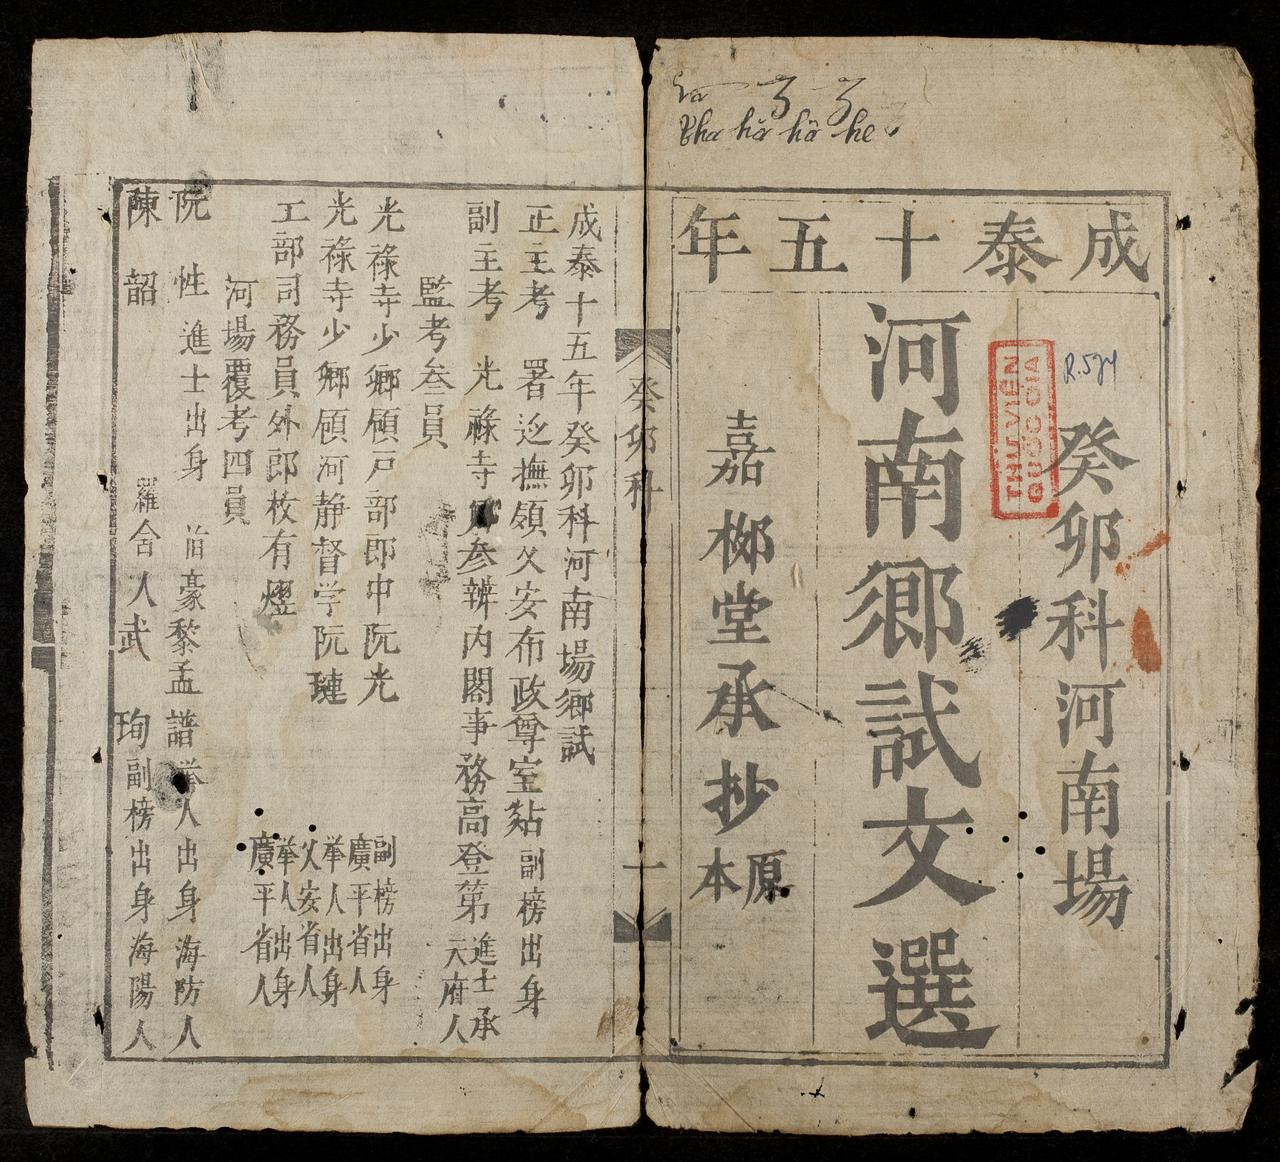 Tha hả hã he
成泰十五年
R.524
THƯ VIỆN
QUỐC GIA
癸卯科河南場
河南鄉試文選
嘉栁堂承抄
原本
癸卯科
一
成泰十五年癸卯科河南場鄉試
正主考 署廵撫領乂安布政尊室點 副榜出身
副主考 光祿寺卿叅辨內閣事務高登第 進士承天府人
監考叁員
光祿寺少卿領戸部郎中阮光 副榜出身廣平省人
光祿寺少卿領河静督学阮璉 举人出身乂安省人
工部司務員外郎枚有熤 举人出身廣平省人
河場覆考四員
阮性 進士出身 豪黎孟譜 举人出身海防人
陳韶 羅舍人武珣 副榜出身海陽人